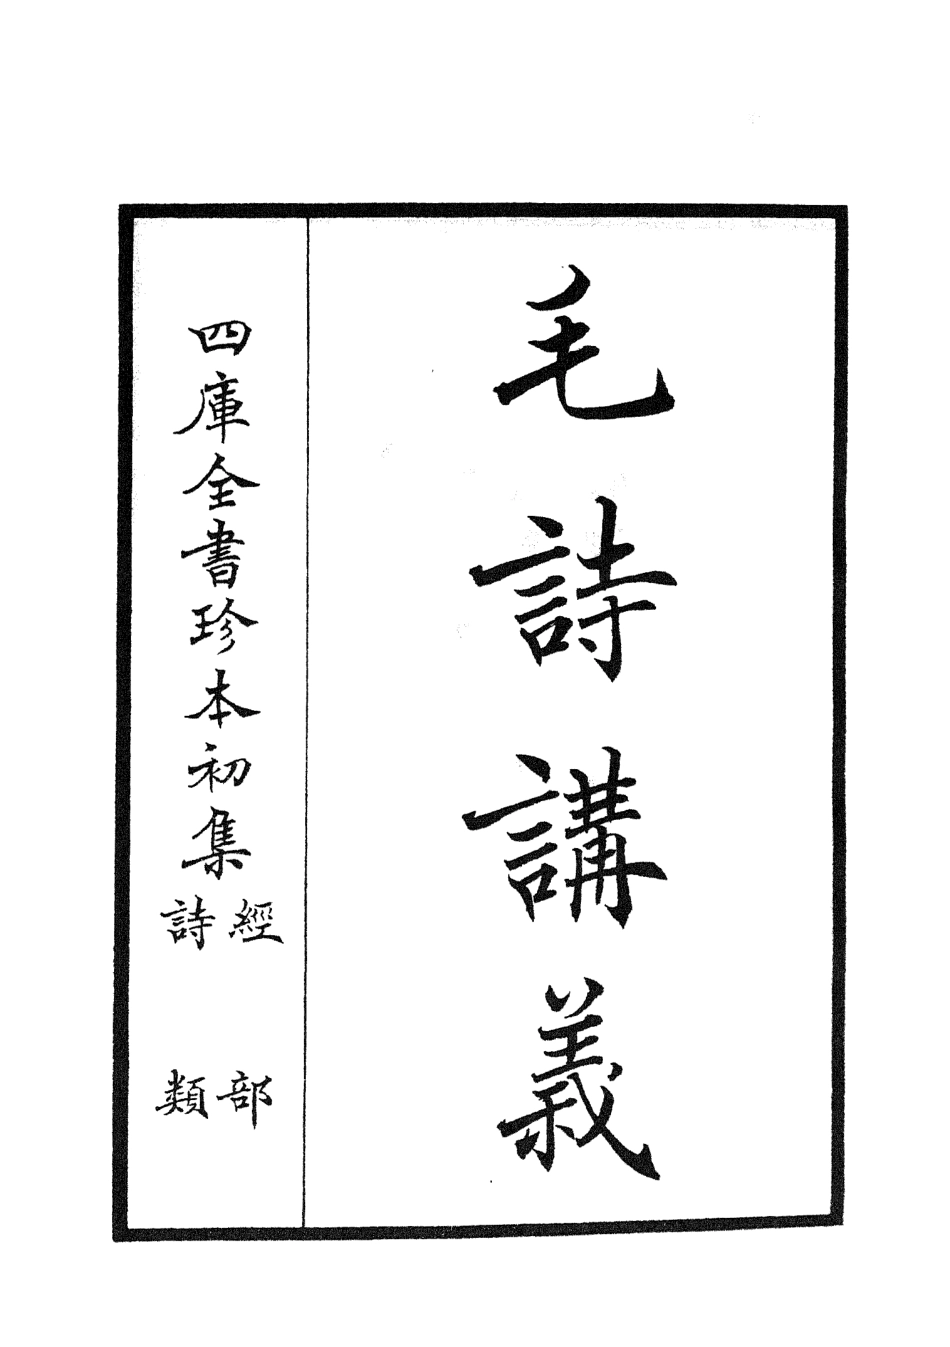 毛詩講義
四庫全書珍本初集
經部
詩類